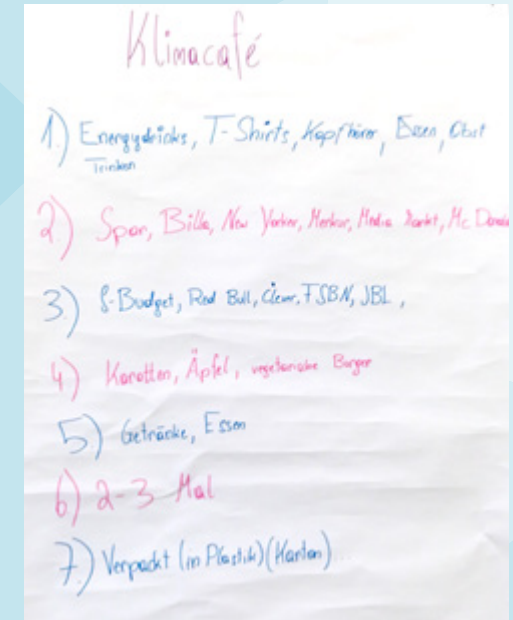 Klimacafé
1.) Energydrinks, T-Shirts, Kopfhörer, Essen, Obst
Trinken
2.) Spar, Billa, New Yorker, Merkur, Media Markt, Mc Donald
3.) S-Budget, Red Bull, clever, FSBN, JBL,
4) Karotten, Äpfel, vegetarische Burger
5) Getränke, Essen
6) 2-3 Mal
7.) Verpackt (in Plastik) (Karton)...